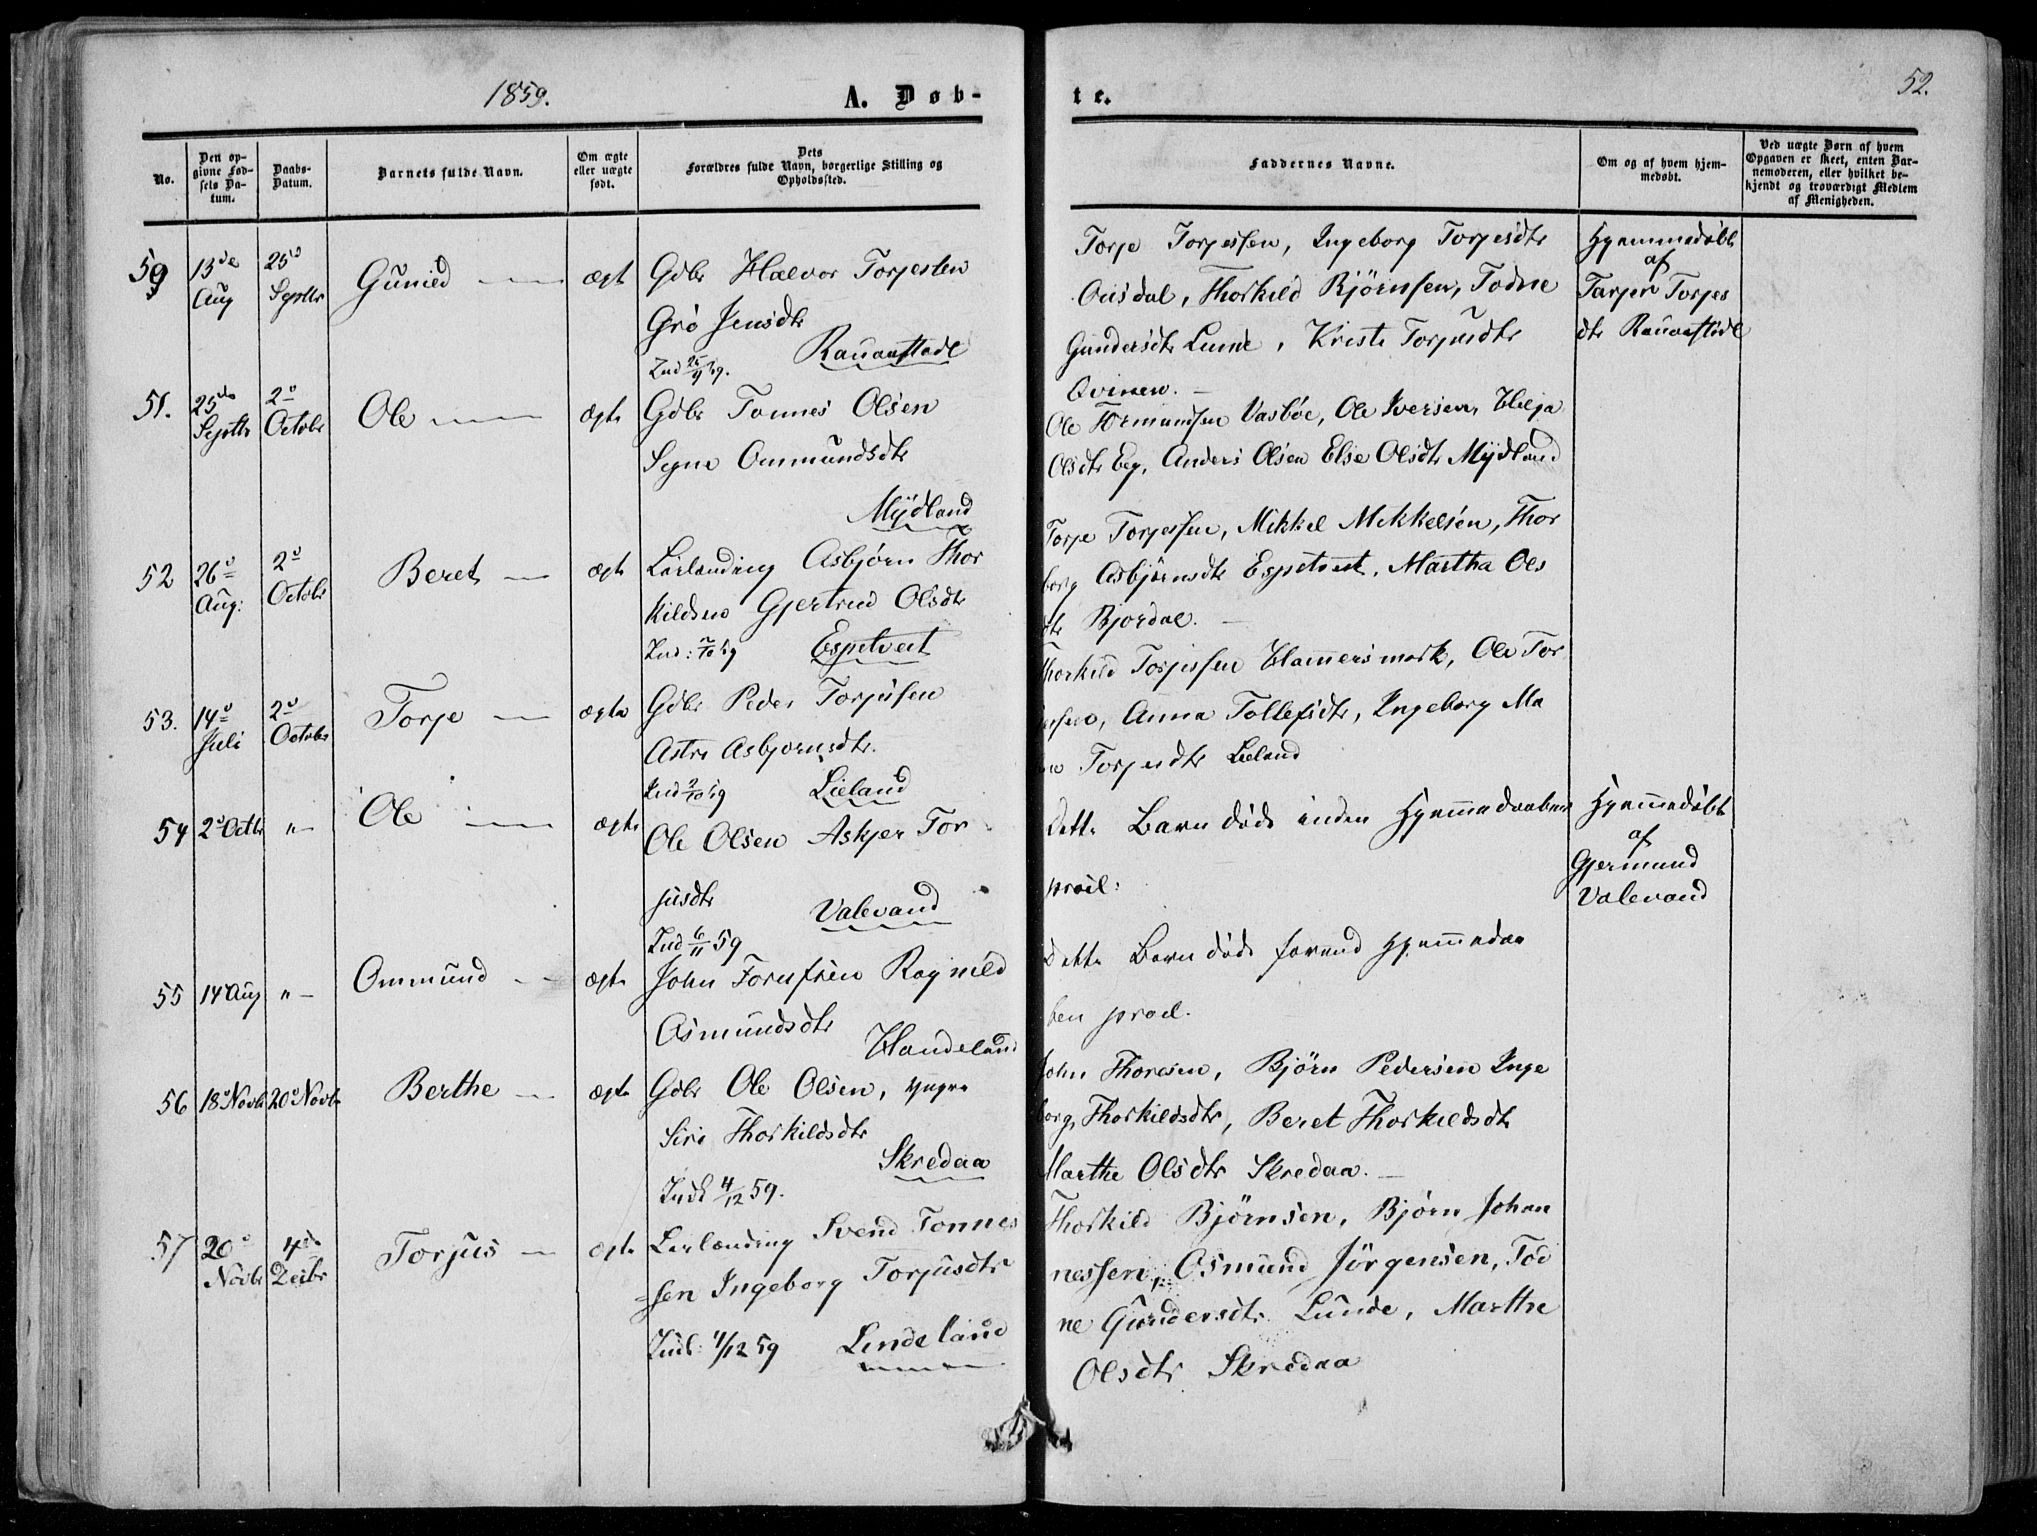 1859.
A. Døb-
te.
52.
No.
Den op-
givne Fød-
sels Da-
tum.
Daabs-
Datum.
Barnets fulde Navn.
Om ægte
eller uægte
født.
Dets
Forældres fulde Navn, borgerlige Stilling og
Opholdssted.
Faddernes Navne.
Om og af hvem hjem-
medøbt.
Ved uægte Børn af hvem
Opgaven er skeet, enten Bar-
nemoderen, eller hvilket be-
kjendt og troværdigt Medlem
af Menigheden.
59 13de Aug 25d Septbr Gunild ægt Gdbr Halvor Torjesten
Gro Jensdtr
Ind 25/9 59. Rauanstadl
Torje Torjessen, Ingeborg Torjesdtr
Ousdal, Thorkild Bjørnsen, Todne
Gundersdtr Lunde, Kriste Torjusdtr
Qvinen.
Hjemmedøbt
af
Tarjer Torjes
dtr Rauanstadl
51. 25de Septbr 2d Octobr Ole ægte Gdbr Tønnes Olsen
Signe Ommundsdtr
Mydland
Ole Tormundsen Vasbøe, Ole Iversen, Helja
Olsdtr Eeg, Anders Olsen Else Olsdtr Mydland
52 26d Aug: 2d Octobr Beret ægte Leilænding Asbjørn Thor
kildsen Gjertrud Olsdtr
Ind: 2/10 59 Espetveit
Torje Torjessen, Mikkel Mikkelsen, Thor
borg Asbjørnsdtr Espetveit, Martha Ols
dtr Bjordal.
53. 14d Juli 2d Octobr Torje ægte Gdbr Peder Torjusen
Astri Asbjørnsdtr.
Ind 2/10 59 Lieland
Thorkild Torjussen Hamersmark, Ole Tor
jusen, Anna Tollefsdtr, Ingeborg Ma
Torjusdtr Lieland
54 2d Octbr "- Ole ægte Ole Olsen Askjer Tor
jusdtr
Valevand
Ind 6/11 59
Dette Barn døde inden Hjemmedaaben
præd:
Hjemmedøbt
af
Gjermund
Valevand
55 14 Aug "- Ommund ægte John Tornfsen Ragnild
Osmundsdtr
Handeland
Dette Barn døde forend Hjemmedaa
ben præd.
56 18d Novbr 20d Novbr Berthe ægte Gdbr Ole Olsen, yngre
Siri Thorkildsdtr
Skredaa
Indk 4/12 59.
John Thoresen, Bjørn Pedersen Inge
borg Thorkildsdtr, Beret Thorkildsdtr
Marthe Olsdtr Skredaa.
57 20d Novbr 4de Decbr Torjus ægte Leilænding Svend Tønnes
sen Ingeborg Torjusdtr
Indk: 4/12 59 Lindeland
Thorkild Bjørnsen, Bjørn Johan
nessen, Osmund Jørgensen, Tod
ne Gundersdtr Lunde, Marthe
Olsdtr Skredaa